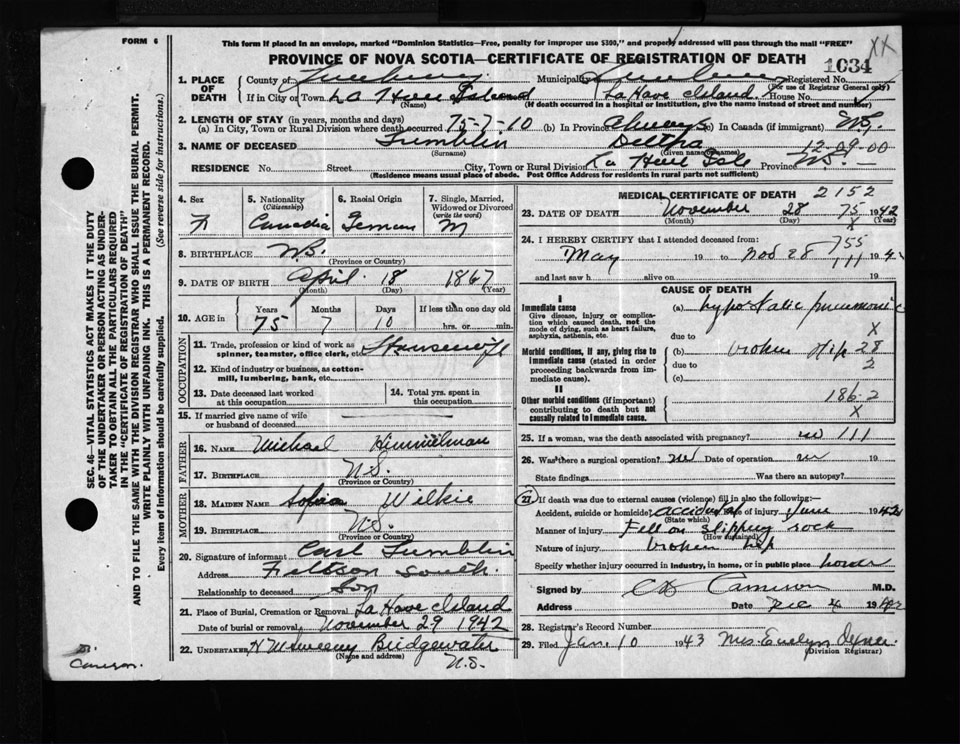 FORM 6
This form if placed in an envelope, marked "Dominion Statistics—Free, penalty for improper use $300," and properly addressed will pass through the mail "FREE"
XX
PROVINCE OF NOVA SCOTIA—CERTIFICATE OF REGISTRATION OF DEATH
1034
1. PLACE OF DEATH
County of Lunenburg Municipality Lunenburg Registered No.
(For use of Registrar General only)
If in City or Town La Have Island La Have Island House No.
(Name) (If death occurred in a hospital or institution, give the name instead of street and number)
2. LENGTH OF STAY (in years, months and days)
(a) In City, Town or Rural Division where death occurred 75-7-10 (b) In Province Always (c) In Canada (if immigrant)
3. NAME OF DECEASED Tumblin
(Surname) (Given names) 12-09-00
RESIDENCE No. Street City, Town or Rural Division La Have Isle Province N.S.
(Residence means usual place of abode. Post Office Address for residents in rural parts not sufficient)
4. Sex
F
5. Nationality
(Citizenship)
Canadia
6. Racial Origin
German
7. Single, Married, Widowed or Divorced
(write the word)
M
8. BIRTHPLACE N.S.
(Province or Country)
9. DATE OF BIRTH April 18 1867
(Month) (Day) (Year)
10. AGE in Years Months Days If less than one day old
75 7 10 hrs. or min.
OCCUPATION
11. Trade, profession or kind of work as spinner, teamster, office clerk, etc. Housewife
12. Kind of industry or business, as cotton-mill, lumbering, bank, etc.
13. Date deceased last worked at this occupation
14. Total yrs. spent in this occupation
15. If married give name of wife or husband of deceased —
FATHER
16. NAME Michael Himmelman
17. BIRTHPLACE N.S.
(Province or Country)
MOTHER
18. MAIDEN NAME Sofia Wilkie
19. BIRTHPLACE N.S.
(Province or Country)
20. Signature of informant Carl Tumblin
Address Feltzon South
Relationship to deceased Son
21. Place of Burial, Cremation or Removal La Have Island
Date of burial or removal November 29 1942
22. UNDERTAKER Bridgewater
(Name and address) N.S.
MEDICAL CERTIFICATE OF DEATH 2152
23. DATE OF DEATH November 28 75 1942
(Month) (Day) X (Year)
24. I HEREBY CERTIFY that I attended deceased from: 755
May 19 to Nov 28 111 194
and last saw h alive on 19
CAUSE OF DEATH
I
Immediate cause
Give disease, injury or complication which caused death, not the mode of dying, such as heart failure, asphyxia, asthenia, etc.
(a) hypostatic pneumonia
X
due to
Morbid conditions, if any, giving rise to immediate cause (stated in order proceeding backwards from immediate cause).
(b) broken hip 28
due to 2
(c)
II
Other morbid conditions (if important) contributing to death but not causally related to immediate cause.
186-2
X
25. If a woman, was the death associated with pregnancy? no 111
26. Was there a surgical operation? no Date of operation 19
State findings Was there an autopsy?
27. If death was due to external causes (violence) fill in also the following:
Accident, suicide or homicide? accident Date of injury June 1942
(State which)
Manner of injury Fell on slippery rock
(How sustained)
Nature of injury broken hip
Specify whether injury occurred in industry, in home, or in public place
Signed by Cameron M.D.
Address Date Dec 4 1942
28. Registrar's Record Number
29. Filed Jan. 10 1943 Mrs. Evelyn
(Division Registrar)
SEC. 46—VITAL STATISTICS ACT MAKES IT THE DUTY OF THE UNDERTAKER OR PERSON ACTING AS UNDERTAKER TO OBTAIN ALL THE PARTICULARS REQUIRED IN THE "CERTIFICATE OF REGISTRATION OF DEATH" AND TO FILE THE SAME WITH THE DIVISION REGISTRAR WHO SHALL ISSUE THE BURIAL PERMIT.
WRITE PLAINLY WITH UNFADING INK. THIS IS A PERMANENT RECORD.
Every item of information should be carefully supplied. (See reverse side for instructions.)
Dr. Cameron.